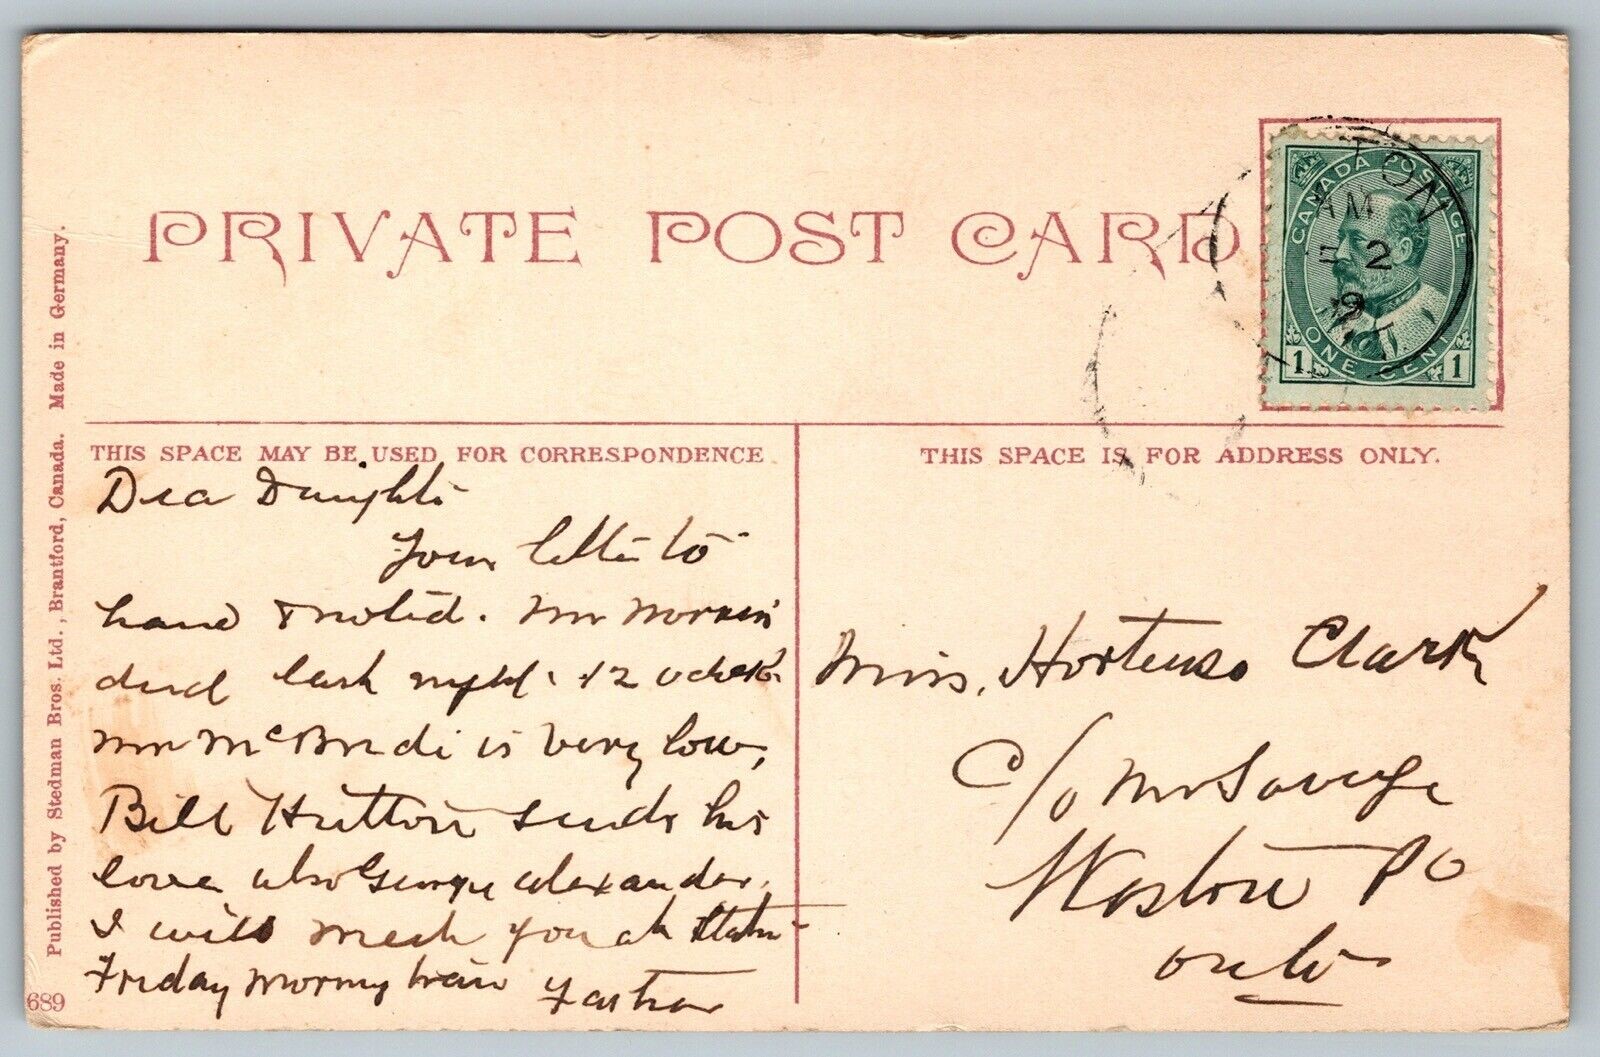 PRIVATE POST CARD
CANADA POSTAGE
ONE CENT
1 1
TON
AM
2
9
THIS SPACE MAY BE USED FOR CORRESPONDENCE
THIS SPACE IS FOR ADDRESS ONLY.
Dear Daughter
Your letter to
hand & noted. Mr
died last night 12 oclock
Mr McBride is very low,
Bill Hutton sends his
love also George Alexander.
I will meet you at Station
Friday morning train Father
Miss. Hortense Clark
c/o Mr Savage
Weston PO
Ont
Published by Stedman Bros. Ltd., Brantford, Canada. Made in Germany.
689